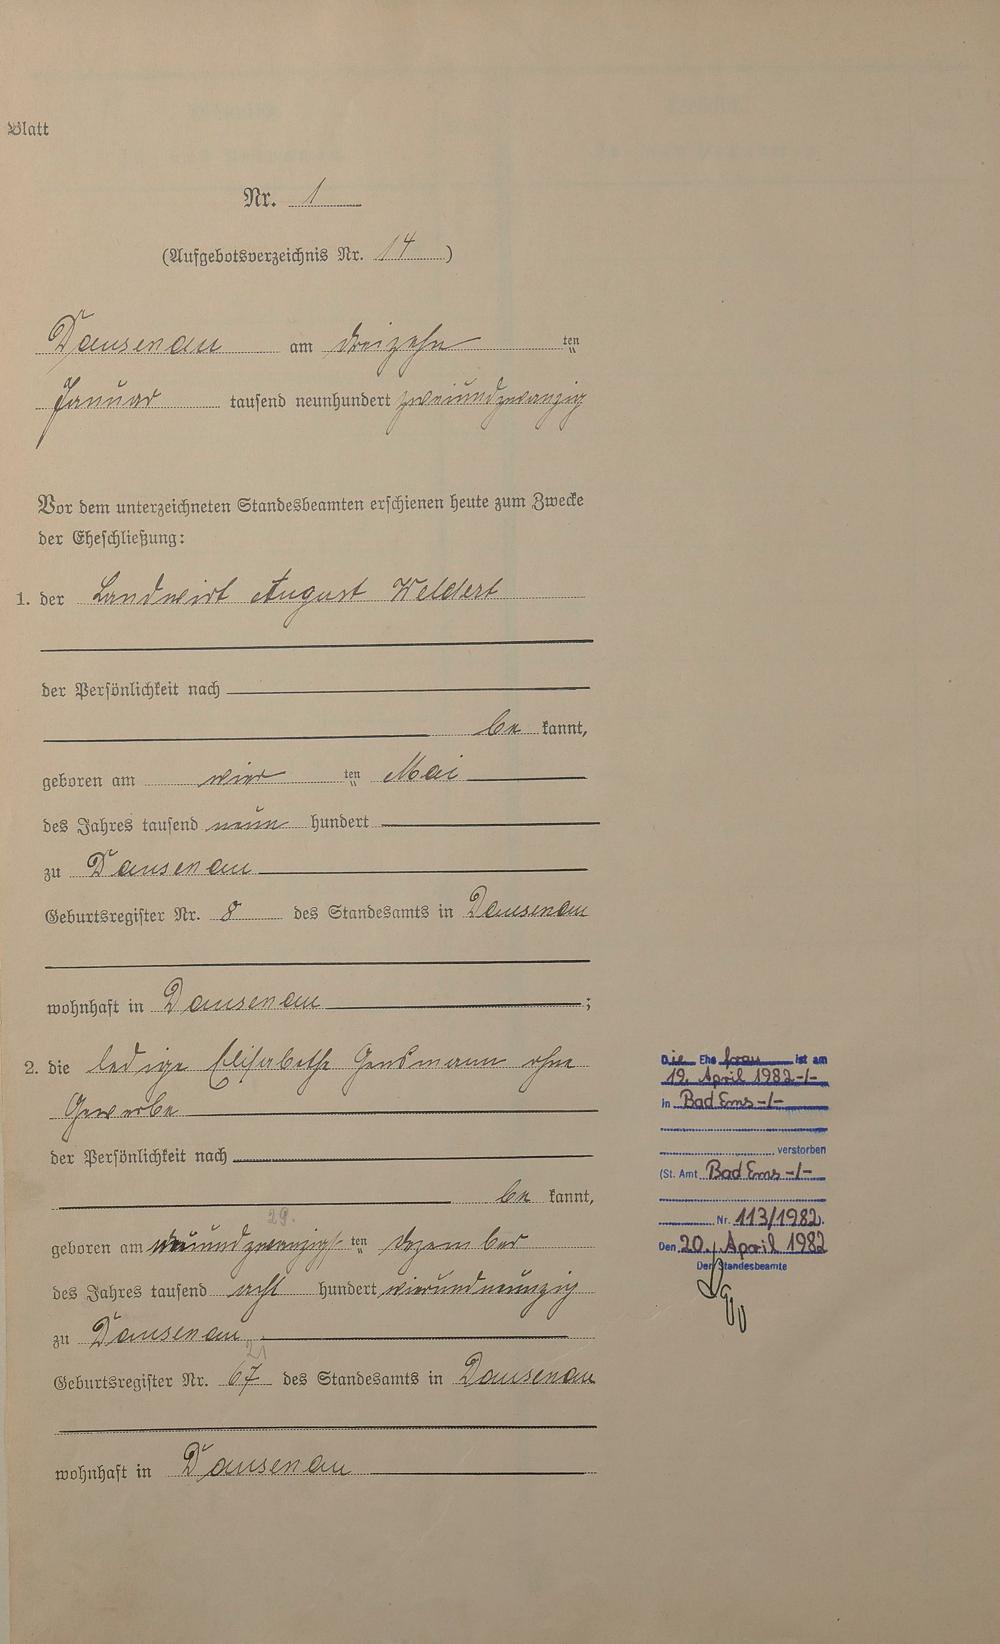 Blatt
Nr. 1
(Aufgebotsverzeichnis Nr. 14)
Dausenau am dreizehn ten
Januar tausend neunhundert zweiundzwanzig
Vor dem unterzeichneten Standesbeamten erschienen heute zum Zwecke
der Eheschließung:
1. der Landwirt August Weldert
der Persönlichkeit nach
be kannt,
geboren am vier ten Mai
des Jahres tausend neun hundert
zu Dausenau
Geburtsregister Nr. 8 des Standesamts in Dausenau
wohnhaft in Dausenau ;
2. die ledige Elisabethe ohne
Gewerbe
der Persönlichkeit nach
be kannt,
29.
geboren am neunundzwanzigs ten Dezember
des Jahres tausend acht hundert vierundneunzig
zu Dausenau
21
Geburtsregister Nr. 67 des Standesamts in Dausenau
wohnhaft in Dausenau
Die Ehe frau ist am
19. April 1982 -/-
in Bad Ems -/-
verstorben
(St. Amt Bad Ems -/-
Nr. 113/1982).
Den 20. April 1982
Der Standesbeamte